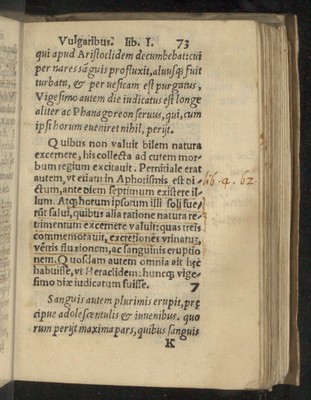 Vulgaribus. lib. I. 73
qui apud Aristoclidem decumbebat: cui
per nares sāguis profluxit, aluusq; fuit
turbata, & per uesicam est purgatus,
Vigesimo autem die iudicatus est longe
aliter ac Phanagoreon seruus, qui, cum
ipsi horum eueniret nihil, perijt.
Quibus non valuit bilem natura
excernere, his collecta ad cutem mor-
bum regium excitauit. Pernitiale erat
autem, vt etiam in Aphorismis est di-
lib. 4. 62
ctum, ante diem septimum existere il-
lum. Atq; horum ipsorum illi soli fue
rūt salui, quibus alia ratione natura re-
trimentum excernere valuit: quas treis
commemorauit, excretiones vrinarū,
vētris fluxionem, ac sanguinis eruptio
nem. Quosdam autem omnia ait hęc
habuisse, vt Heraclidem: huncq; vige-
simo die iudicatum fuisse. 7
Sanguis autem plurimis erupit, prę
cipue adolescentulis & iuuenibus. quo
rum perijt maxima pars, quibus sanguis
K